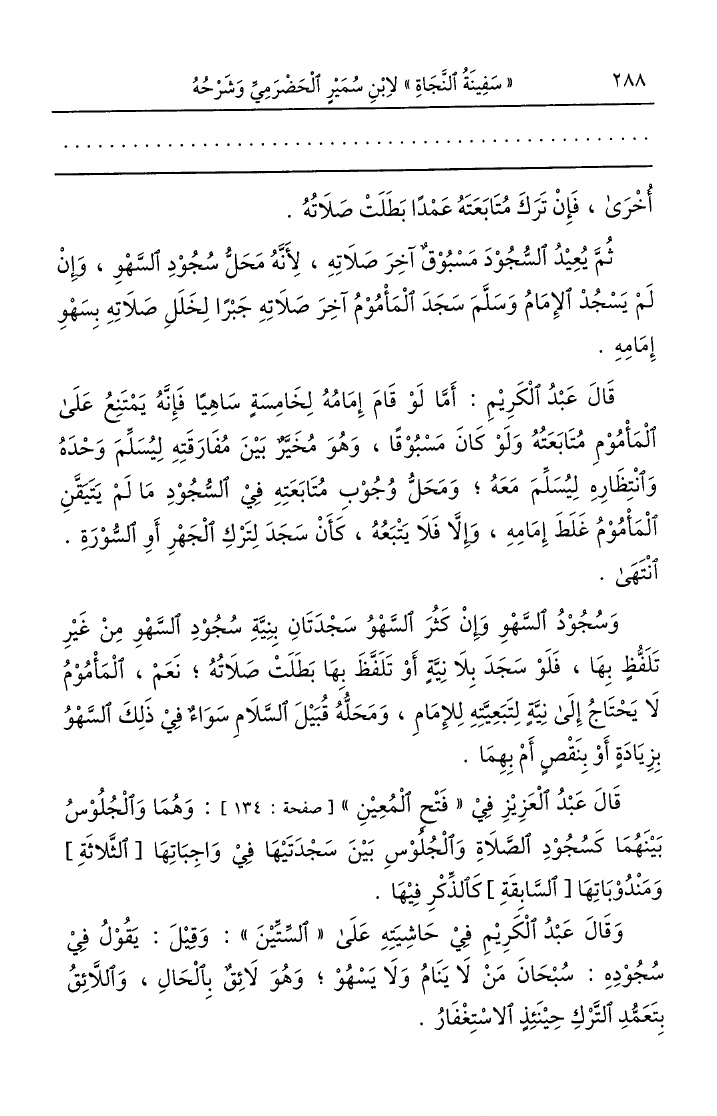 ٢٨٨ « سَفِينَةُ ٱلنَّجَاةِ » لِابْنِ سُمَيْرٍ ٱلْحَضْرَمِيِّ وَشَرْحُهُ
. . . . . . . . . . . . . . . . . . . . . . . . . . . . . . . . . . . . . . . . . . . . . . . . . .
أُخْرَىٰ ، فَإِنْ تَرَكَ مُتَابَعَتَهُ عَمْدًا بَطَلَتْ صَلَاتُهُ .
ثُمَّ يُعِيْدُ ٱلسُّجُودَ مَسْبُوْقٌ آخِرَ صَلَاتِهِ ، لِأَنَّهُ مَحَلُّ سُجُودِ ٱلسَّهْوِ ، وَإِنْ
لَمْ يَسْجُدْ ٱلإِمَامُ وَسَلَّمَ سَجَدَ ٱلْمَأْمُوْمُ آخِرَ صَلَاتِهِ جَبْرًا لِخَلَلِ صَلَاتِهِ بِسَهْوِ
إِمَامِهِ .
قَالَ عَبْدُ ٱلْكَرِيْمِ : أَمَّا لَوْ قَامَ إِمَامُهُ لِخَامِسَةٍ سَاهِيًا فَإِنَّهُ يَمْتَنِعُ عَلَىٰ
ٱلْمَأْمُوْمِ مُتَابَعَتُهُ وَلَوْ كَانَ مَسْبُوْقًا ، وَهُوَ مُخَيَّرٌ بَيْنَ مُفَارَقَتِهِ لِيُسَلِّمَ وَحْدَهُ
وَٱنْتِظَارِهِ لِيُسَلِّمَ مَعَهُ ؛ وَمَحَلُّ وُجُوْبِ مُتَابَعَتِهِ فِيْ ٱلسُّجُودِ مَا لَمْ يَتَيَقَّنِ
ٱلْمَأْمُوْمُ غَلَطَ إِمَامِهِ ، وَإِلَّا فَلَا يَتْبَعُهُ ، كَأَنْ سَجَدَ لِتَرْكِ ٱلْجَهْرِ أَوِ ٱلسُّوْرَةِ .
ٱنْتَهَىٰ .
وَسُجُوْدُ ٱلسَّهْوِ وَإِنْ كَثُرَ ٱلسَّهْوُ سَجْدَتَانِ بِنِيَّةِ سُجُودِ ٱلسَّهْوِ مِنْ غَيْرِ
تَلَفُّظٍ بِهَا ، فَلَوْ سَجَدَ بِلَا نِيَّةٍ أَوْ تَلَفَّظَ بِهَا بَطَلَتْ صَلَاتُهُ ؛ نَعَمْ ، ٱلْمَأْمُوْمُ
لَا يَحْتَاجُ إِلَىٰ نِيَّةٍ لِتَبَعِيَّتِهِ لِلإِمَامِ ، وَمَحَلُّهُ قُبَيْلَ ٱلسَّلَامِ سَوَاءٌ فِيْ ذَلِكَ ٱلسَّهْوُ
بِزِيَادَةٍ أَوْ بِنَقْصٍ أَمْ بِهِمَا .
قَالَ عَبْدُ ٱلْعَزِيْزِ فِيْ « فَتْحِ ٱلْمُعِيْنِ » [ صفحة : ١٣٤ ] : وَهُمَا وَٱلْجُلُوْسُ
بَيْنَهُمَا كَسُجُوْدِ ٱلصَّلَاةِ وَٱلْجُلُوْسِ بَيْنَ سَجْدَتَيْهَا فِيْ وَاجِبَاتِهَا [ ٱلثَّلَاثَةِ ]
وَمَنْدُوْبَاتِهَا [ ٱلسَّابِقَةِ ] كَٱلذِّكْرِ فِيْهَا .
وَقَالَ عَبْدُ ٱلْكَرِيْمِ فِيْ حَاشِيَتِهِ عَلَىٰ « ٱلسِّتِّيْنَ » : وَقِيْلَ : يَقُوْلُ فِيْ
سُجُوْدِهِ : سُبْحَانَ مَنْ لَا يَنَامُ وَلَا يَسْهُوْ ؛ وَهُوَ لَائِقٌ بِٱلْحَالِ ، وَٱللَّائِقُ
بِتَعَمُّدِ ٱلتَّرْكِ حِيْنَئِذٍ ٱلاسْتِغْفَارُ .